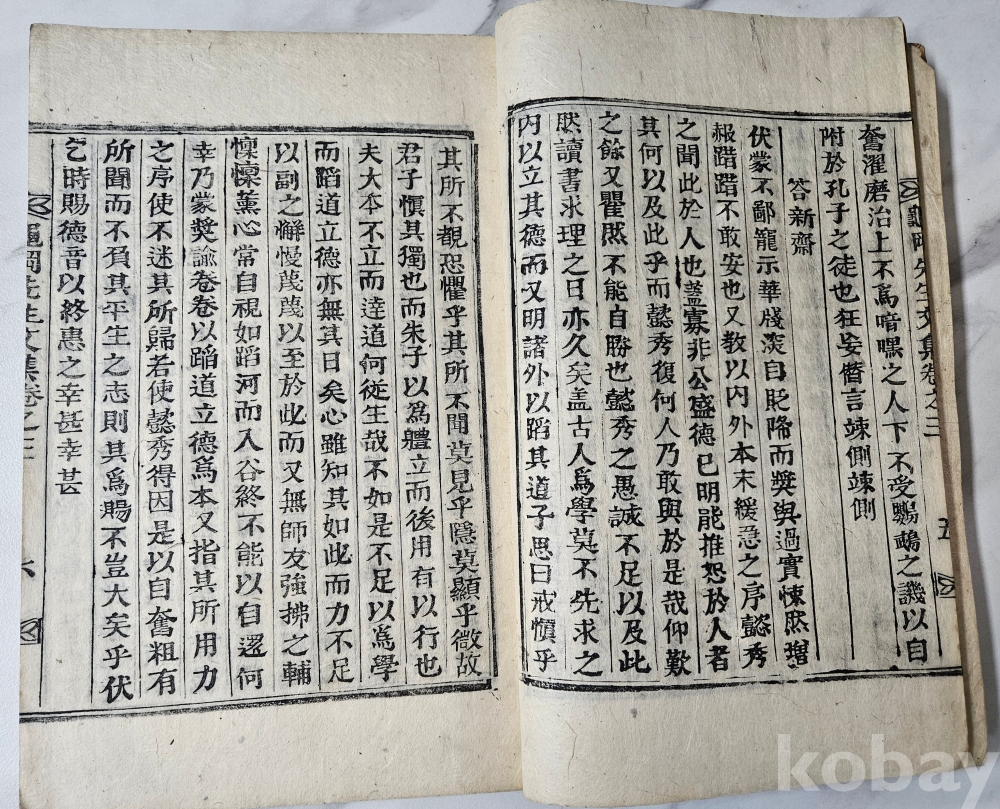 奮濯磨治上不爲喑嘿之人下不受鸚鵡之譏以自
附於孔子之徒也狂妄僭言竦側竦側
答新齋
伏蒙不鄙寵示華牋淡自貶降而奬與過實悚然增
赧踖踖不敢安也又敎以内外本末緩急之序懿秀
之聞此於人也盖寡非公盛德已明能推恕於人者
其何以及此乎而懿秀復何人乃敢與於是哉仰歎
之餘又瞿然不能自勝也懿秀之愚誠不足以及此
然讀書求理之日亦久矣盖古人爲學莫不先求之
内以立其德而又明諸外以蹈其道子思曰戒愼乎
先生文集卷之三
五
其所不覩恐懼乎其所不聞莫見乎隱莫顯乎微故
君子愼其獨也而朱子以爲軆立而後用有以行也
夫大本不立而達道何從生哉不如是不足以爲學
而蹈道立德亦無其日矣心雖知其如此而力不足
以副之懈慢蔑蔑以至於此而又無師友強拂之輔
懍懍薰心常自視如蹈河而入谷終不能以自還何
幸乃蒙奬諭卷卷以蹈道立德爲本又指其所用力
之序使不迷其所歸若使懿秀得因是以自奮粗有
所聞而不負其平生之志則其爲賜不豈大矣乎伏
乞時賜德音以終惠之幸甚幸甚
岡先生文集卷之三
六
kobay